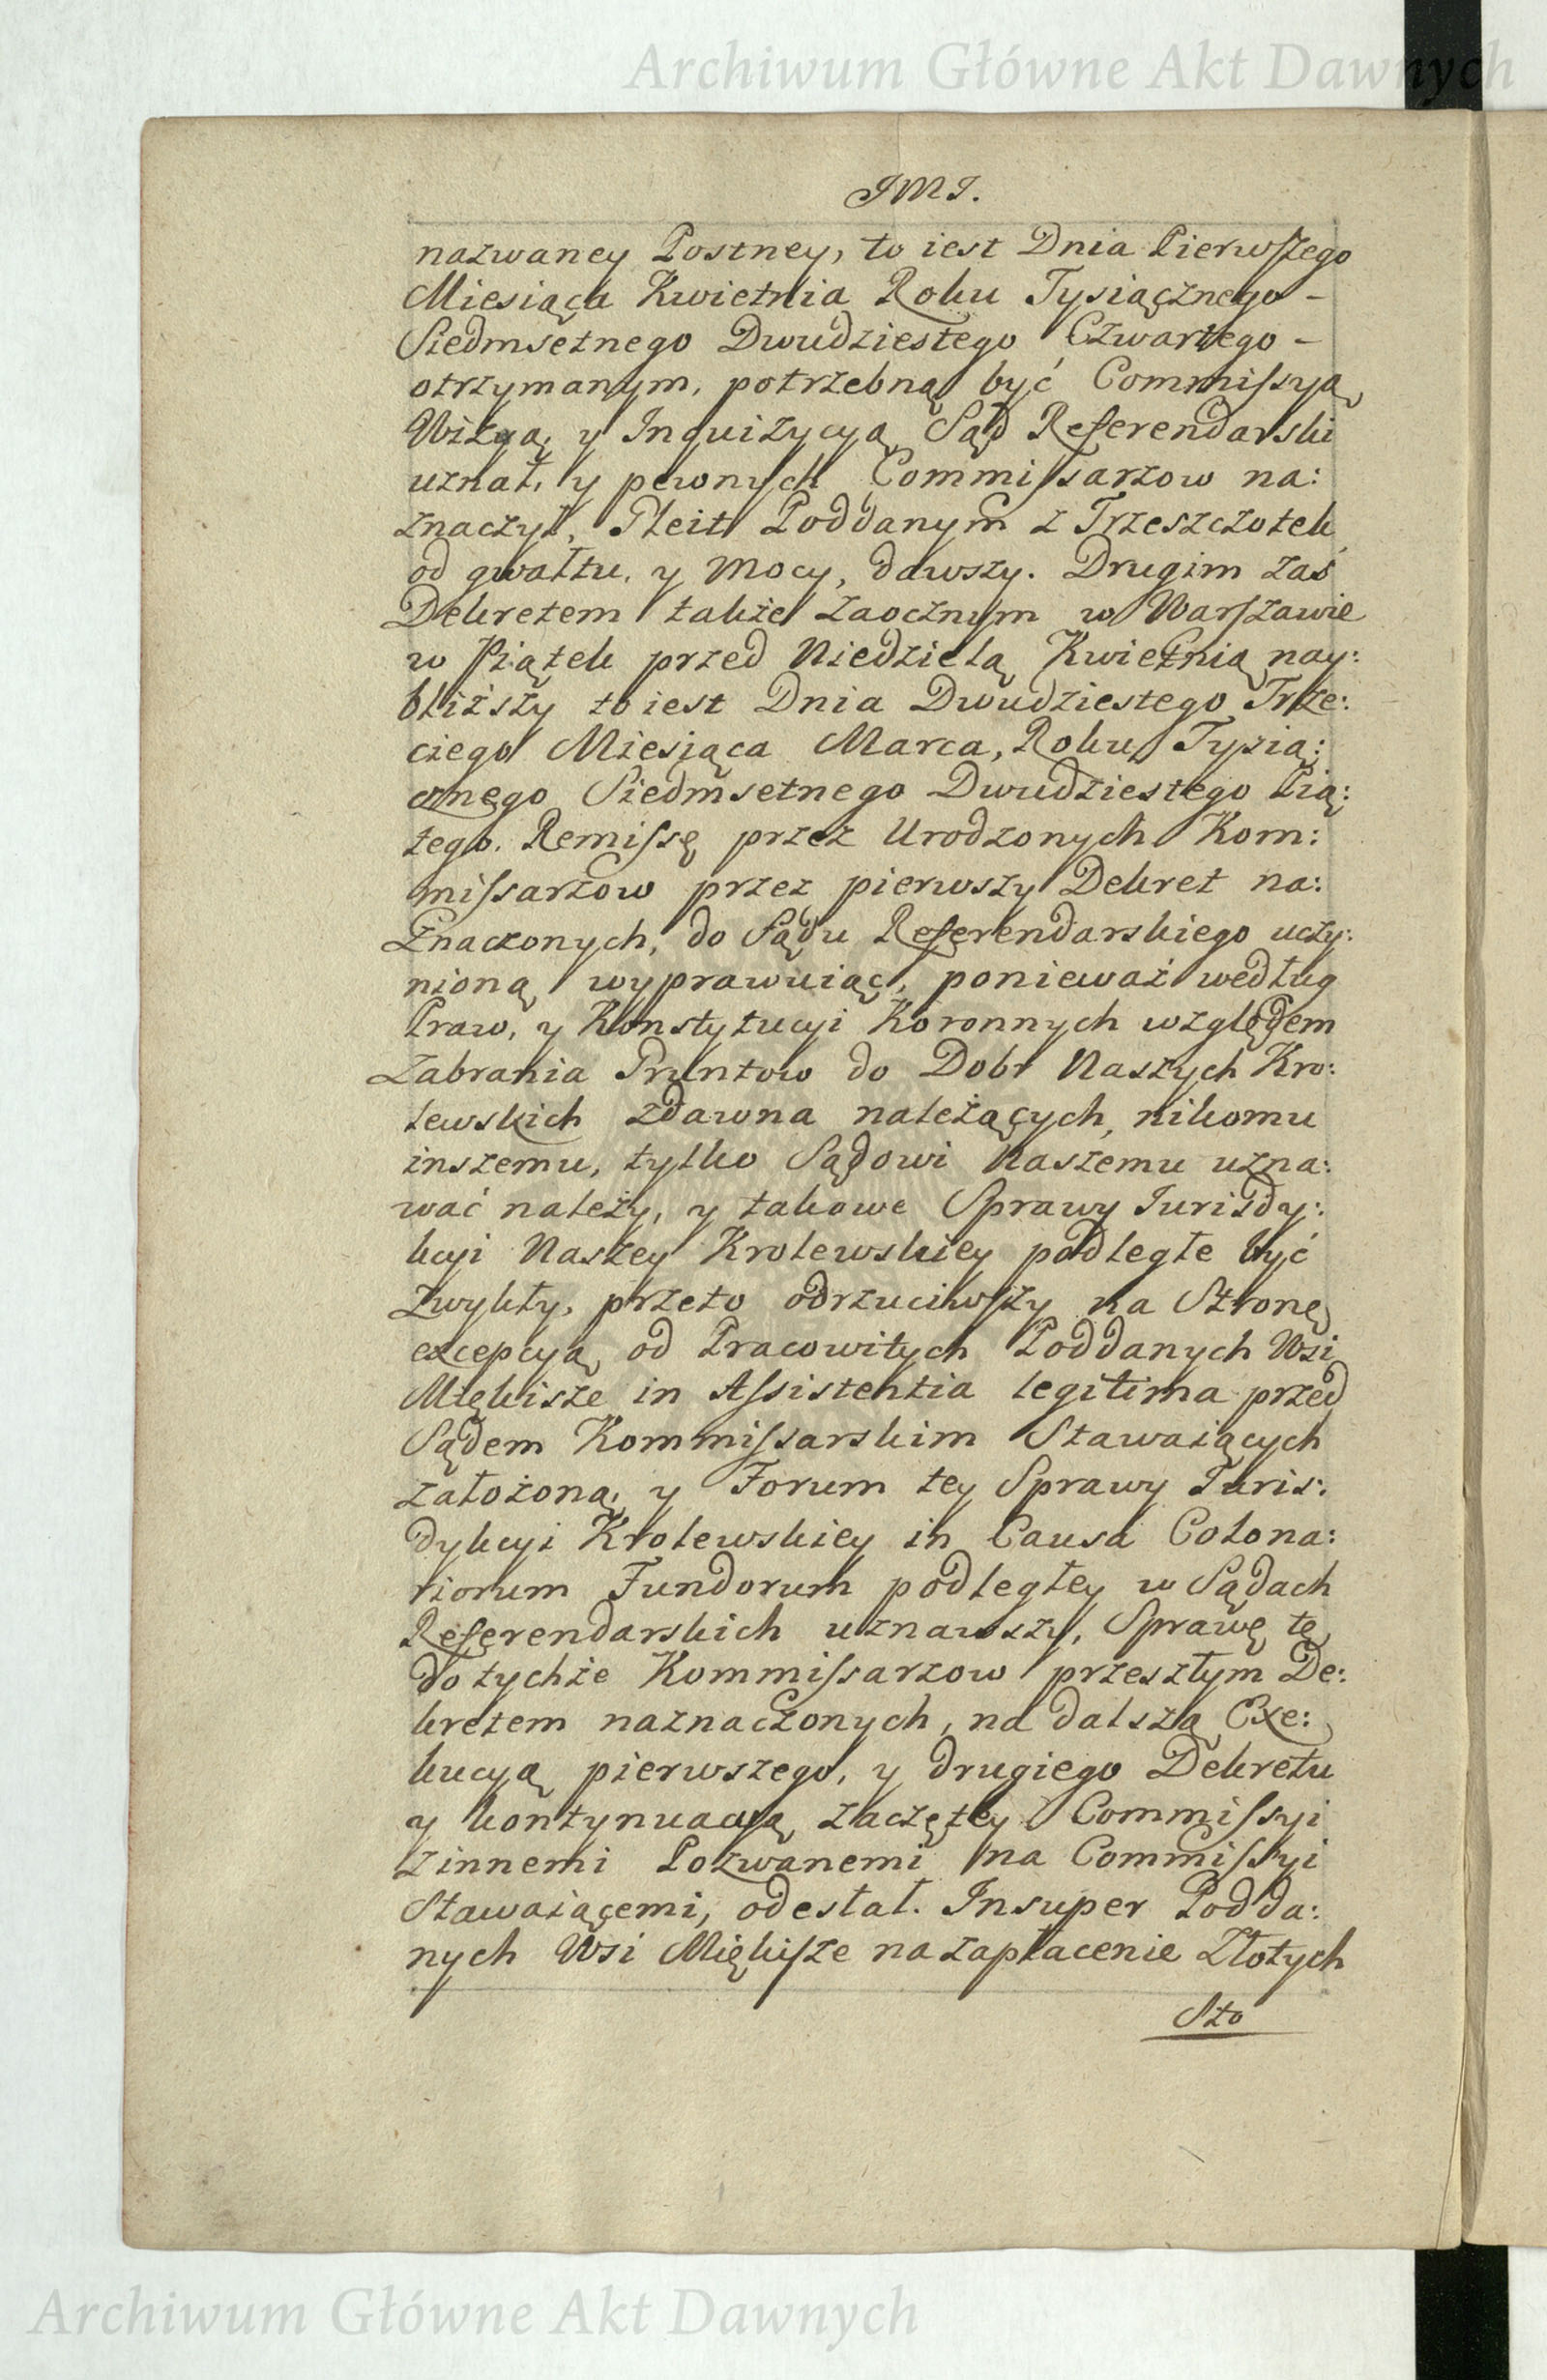 Archiwum Główne Akt Dawnych
JMJ.
nazwaney Postney, to iest Dnia Pierwszego
Miesiąca Kwietnia Roku Tysiącznego -
Siedmsetnego Dwudziestego Czwartego -
otrzymanym, potrzebną być Commissyą
Wizyą, y Inquizycyą Sąd Referendarski
uznał, y pewnych Commissarzow na:
znaczył, Gleit Poddanym z Trzeszczotek
od gwałtu, y mocy, dawszy. Drugim zaś
Dekretem także zaocznym w Warszawie
w Piątek przed Niedzielą Kwietnią nay:
bliższy to iest Dnia Dwudziestego Trze:
ciego Miesiąca Marca, Roku Tysią:
cznego Siedmsetnego Dwudziestego Pią:
tego. Remissę przez Urodzonych Kom:
missarzow przez pierwszy Dekret na:
znaczonych, do Sądu Referendarskiego uczy:
nioną wyprawuiąc, ponieważ według
Praw, y Konstytucyi Koronnych względem
Zabrania Gruntow do Dobr Naszych Kro:
lewskich zdawna należących, nikomu
inszemu, tylko Sądowi Naszemu uzna:
wać należy, y takowe Sprawy Jurizdy:
kcyi Naszey Krolewskiey podległe być
Zwykły, przeto odrzuciwszy na Stronę
excepcyą od Pracowitych Poddanych Wsi
Mlękisze in Assistentia legitima przed
Sądem Kommissarskim Stawaiących
założoną, y Forum tey Sprawy Juris:
dykcyi Krolewskiey in Causa Colona:
riorum Fundorum podległey w Sądach
Referendarskich uznawszy, Sprawę tę
do tychże Kommissarzow przeszłym De:
kretem naznaczonych, na dalszą Exe:
kucyą pierwszego, y drugiego Dekretu
y kontynuacyą zaczętey Commissyi
z innemi Pozwanemi na Commissyi
Stawaiącemi, odesłał. Insuper Podda:
nych Wsi Miękisze na zapłacenie Złotych
Sto
Archiwum Główne Akt Dawnych